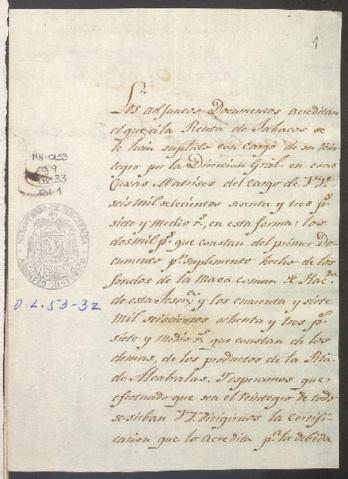 1
Los adjuntos Documentos acreditan
el que á la Renta de Tabacos se
le han suplido con cargo de su rein-
tegro por la Direccion Gral. en esas
Casas Matrises del cargo de V.S.
seis mil seiscientos y tres ps.
siete y medio rs. en esta forma: los
dos mil ps. que constan del primer Do-
cumento pr. suplemento hecho de los
fondos de la Masa comun de Hacda.
de esta Tesorª. y los cuarenta y siete
Mil seiscientos ochenta y tres ps.
siete y medio rs. que constan de los
demas, de los productos de la Rta.
de Alcabalas. Y esperamos que
efectuado que sea el reintegro de todo
se sirban VV. dirigirnos la Certifi-
cacion que lo acredita pª. la debida
MH-0253
O.L. 53-32